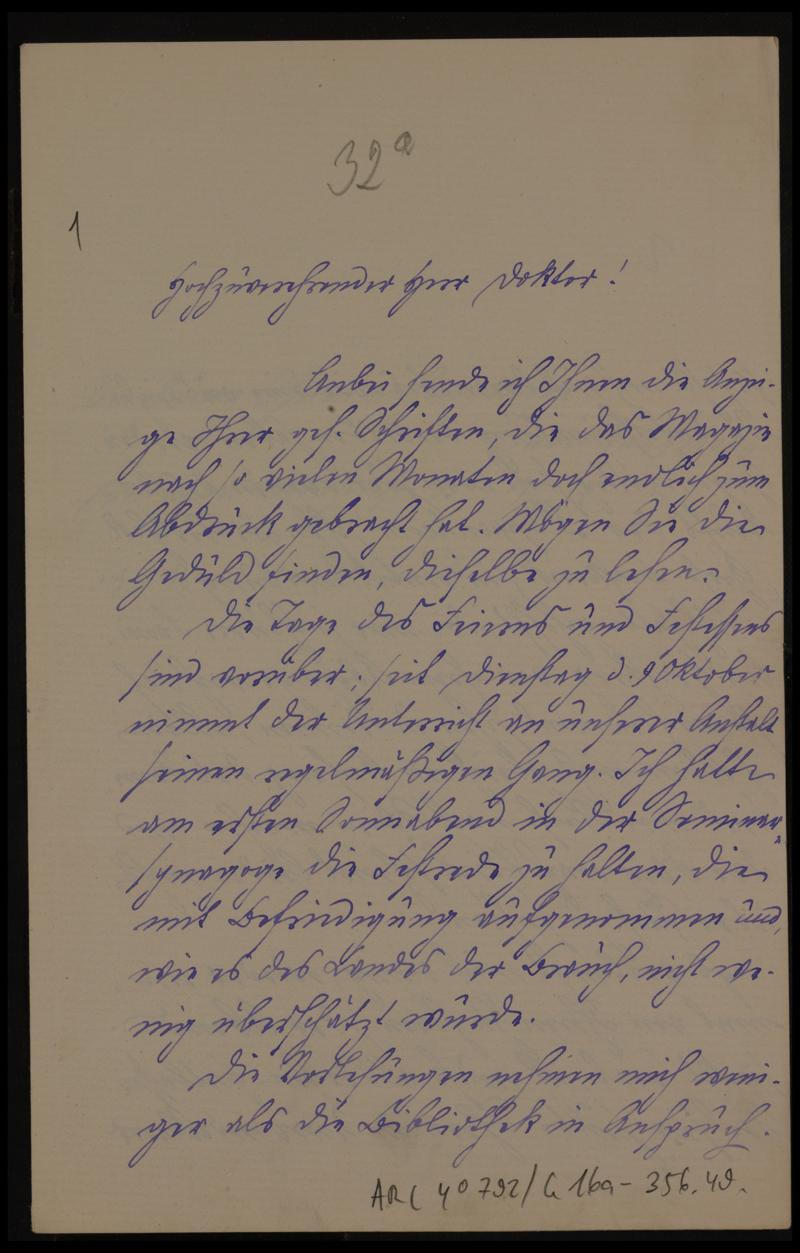 32a
1
Hochzuverehrender Herr Doktor!
Anbei sende ich Ihnen die Anzei-
ge Ihrer gef. Schriften, die das Magazin
nach so vielen Monaten doch endlich zum
Abdruck gebracht hat. Mögen Sie die
Geduld finden, dieselbe zu lesen.
Die Tage des Feierns und Festessens
sind vorüber; seit Dienstag d. 9 Oktober
nimmt der Unterricht an unserer Anstalt
seinen regelmäßigen Gang. Ich hatte
am ersten Sonnabend in der Seminar-
synagoge die Festrede zu halten, die
mit Befriedigung aufgenommen und,
wie es des Landes der Brauch, nicht we-
nig überschätzt wurde.
Die Vorlesungen nehmen mich weni-
ger als die Bibliothek in Anspruch.
ARC 4º 792/G 16a - 356.49.